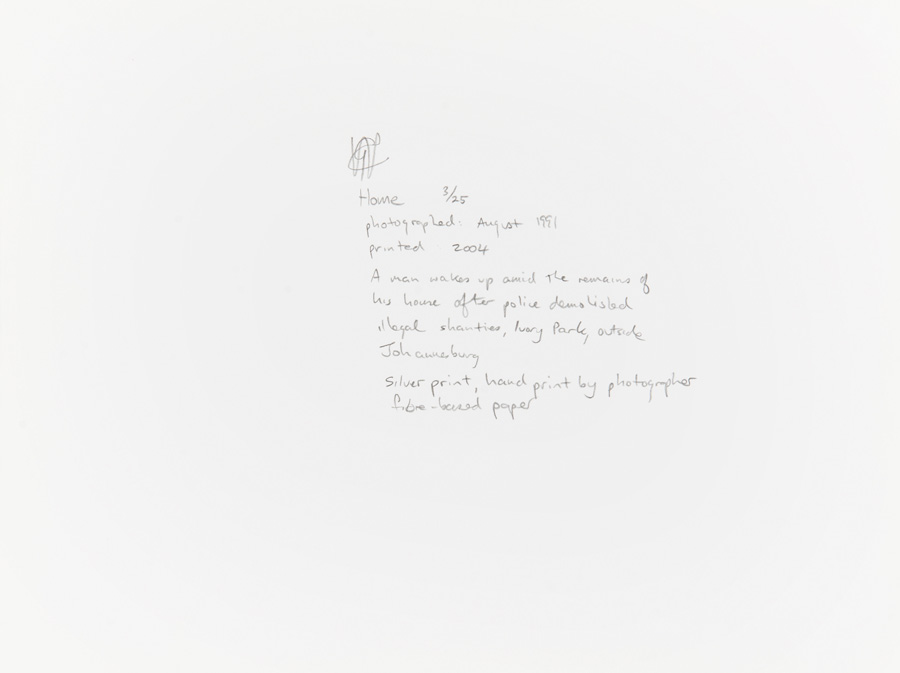 Home 3/25
photographed: August 1991
printed 2004
A man wakes up amid the remains of
his house after police demolished
illegal shanties, Ivory Park, outside
Johannesburg
Silver print, hand print by photographer
fibre-based paper